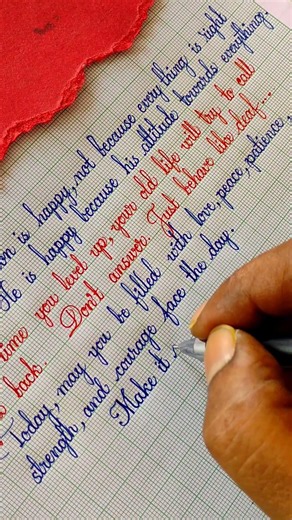 is happy, not because every thing is right
He is happy because his attitude towards everything
time you level up, your old life will try to call
back. Don't answer. Just behave like deaf....
Today, may you be filled with love, peace, patience,
strength, and courage face the day.
Make it